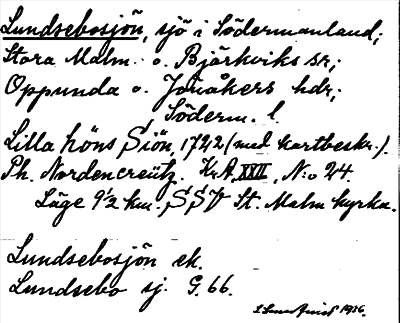 Lundsebosjön, sjö i Södermanland;
Stora Malm o. Björkviks sr;
Oppunda o. Jönåkers hdr;
Söderm. l.
Lilla höns Siön, 1722 (med kartbeskr.).
Ph. Nordencreütz. K.A. XXII, N:o 24.
Läge 9½ km. SSV St. Malm kyrka.
Lundsebosjön ek.
Lundsebo sj. G. 66.
1916.